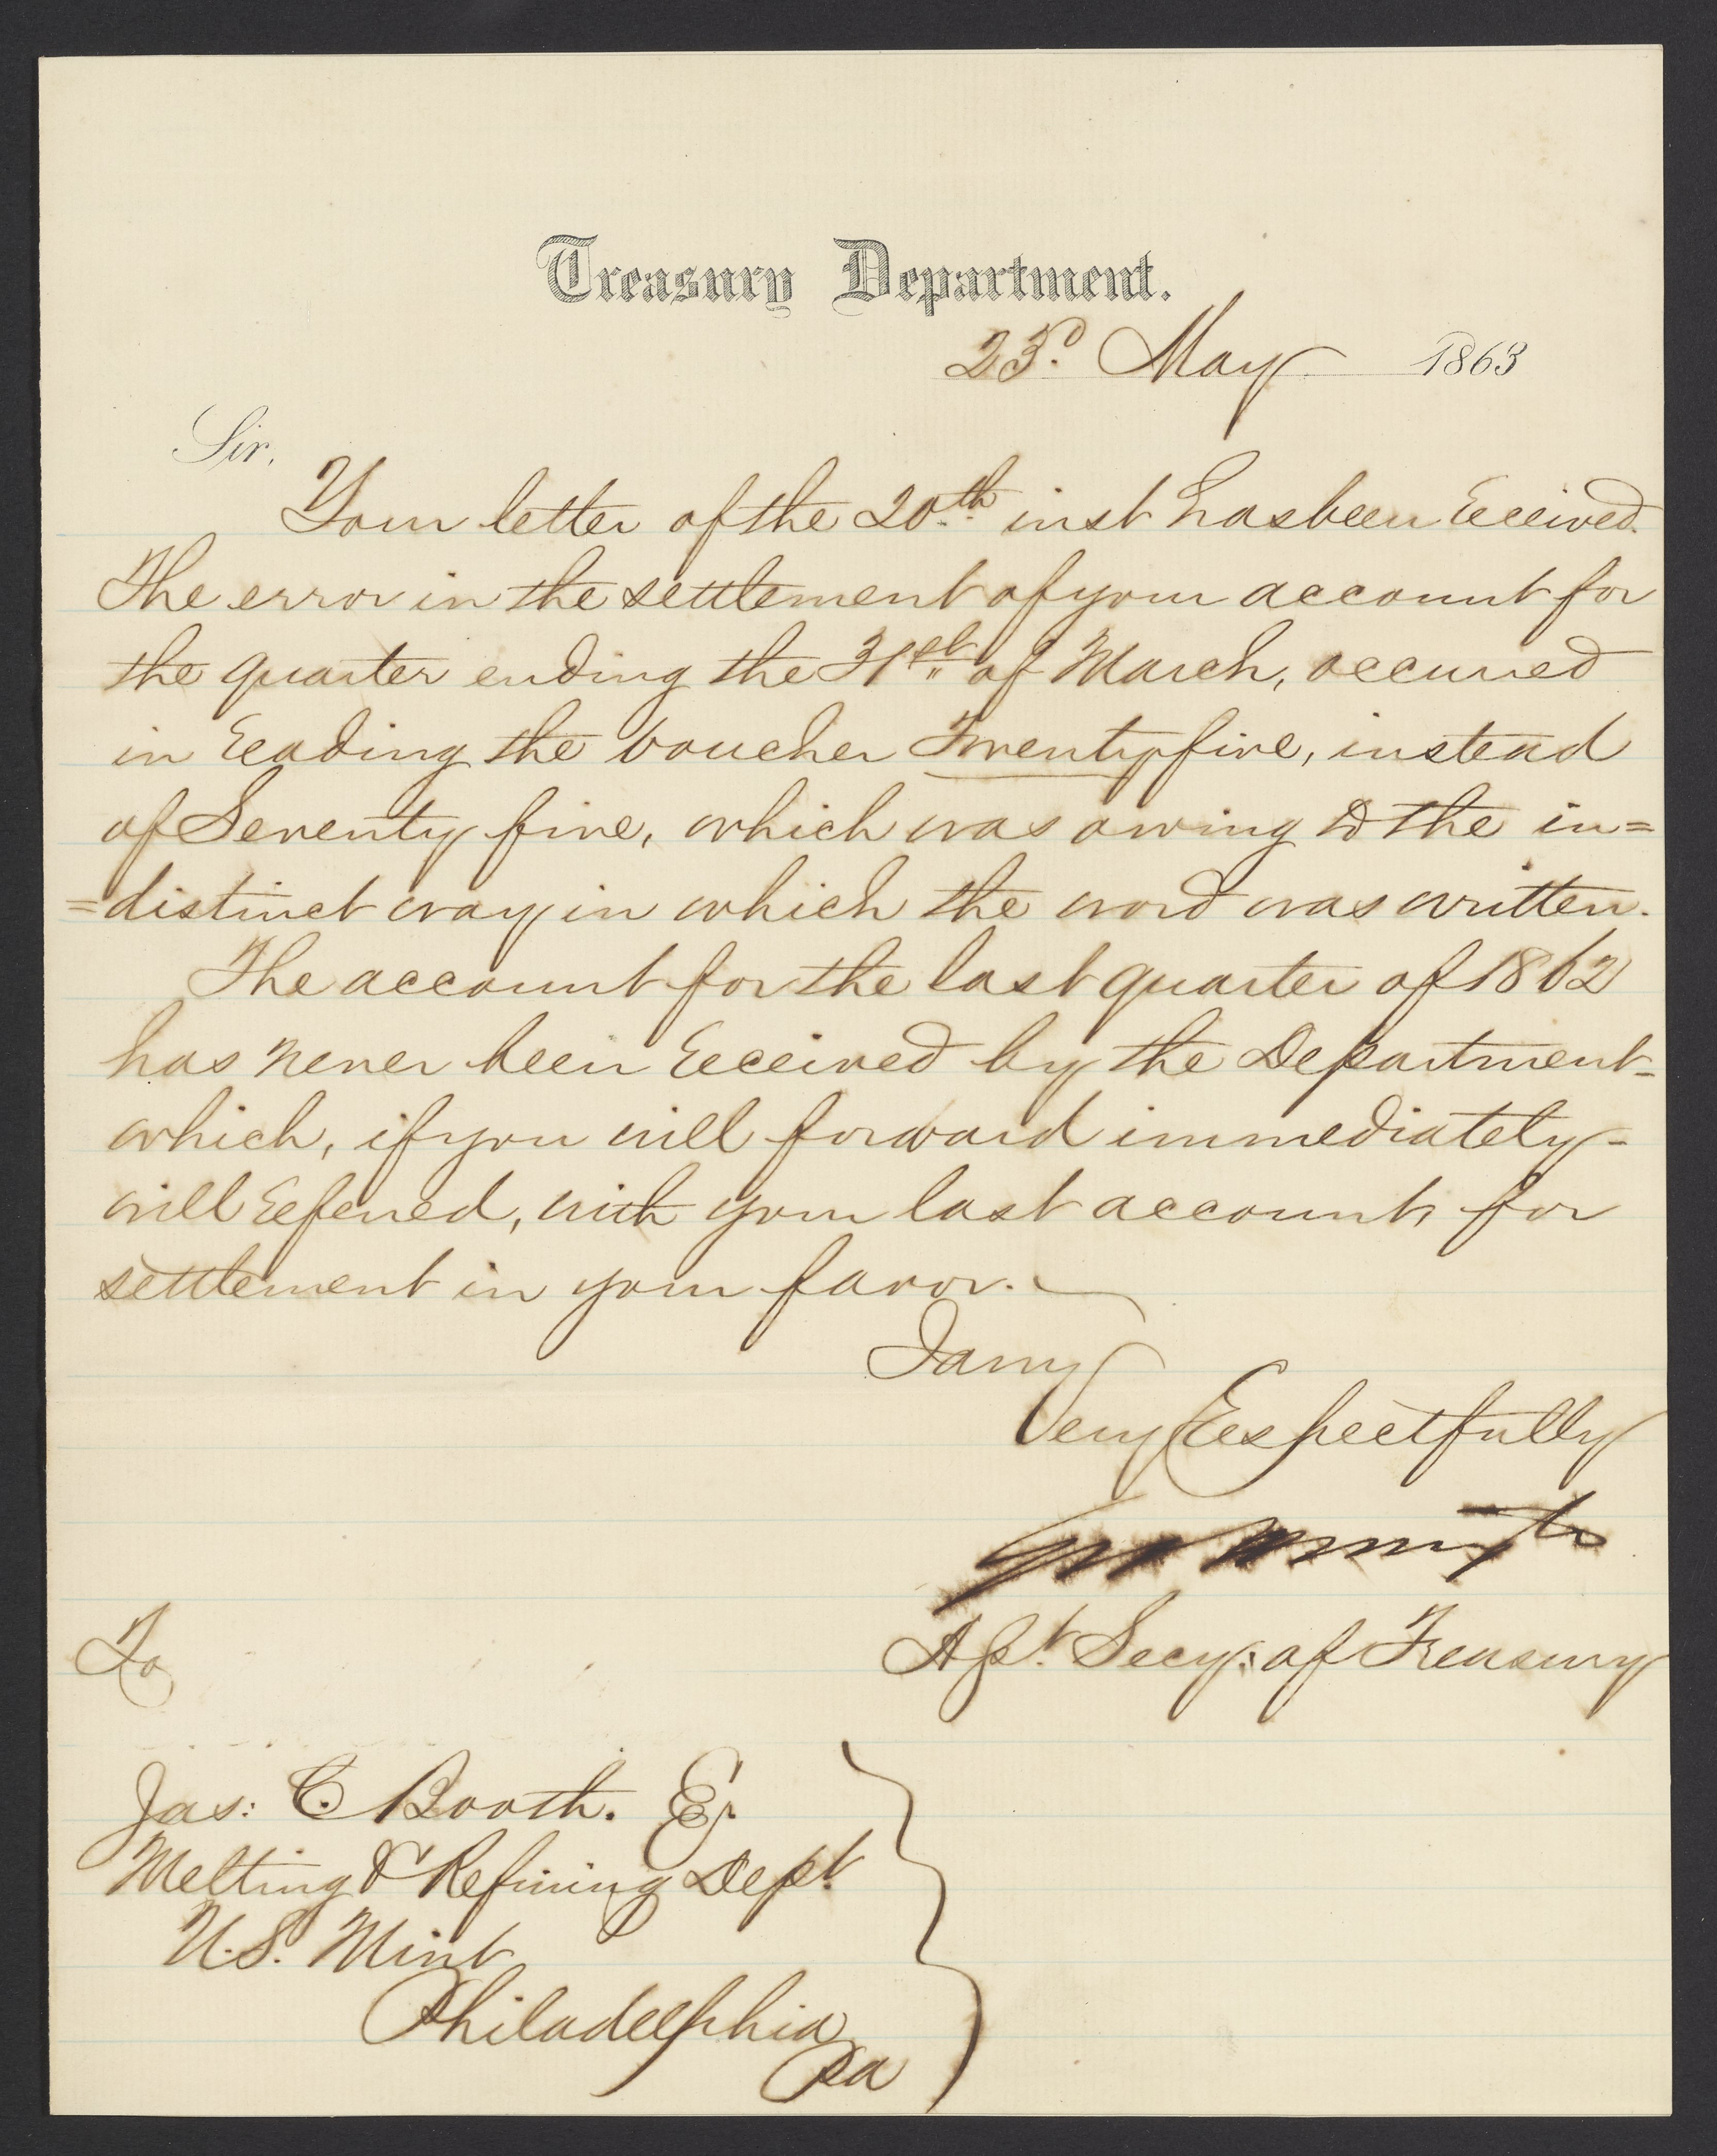 Treasury Department.
23.d May 1863
Sir,
Your letter of the 20th inst has been received.
The error in the settlement of your account for
the quarter ending the 31st of March, occurred
in reading the voucher Twenty five, instead
of Seventy five, which was owing to the in=
=distinct way in which the word was written.
The account for the last quarter of 1862
has never been received by the Department-
which, if you will forward immediately-
will referred, with your last account, for
settlement in your favor.
I am
Very Respectfully
Asst. Secy: of Treasury
To
Jas: C. Booth. Er
Melting & Refining Dept.
U.S. Mint
Philadelphia
Pa